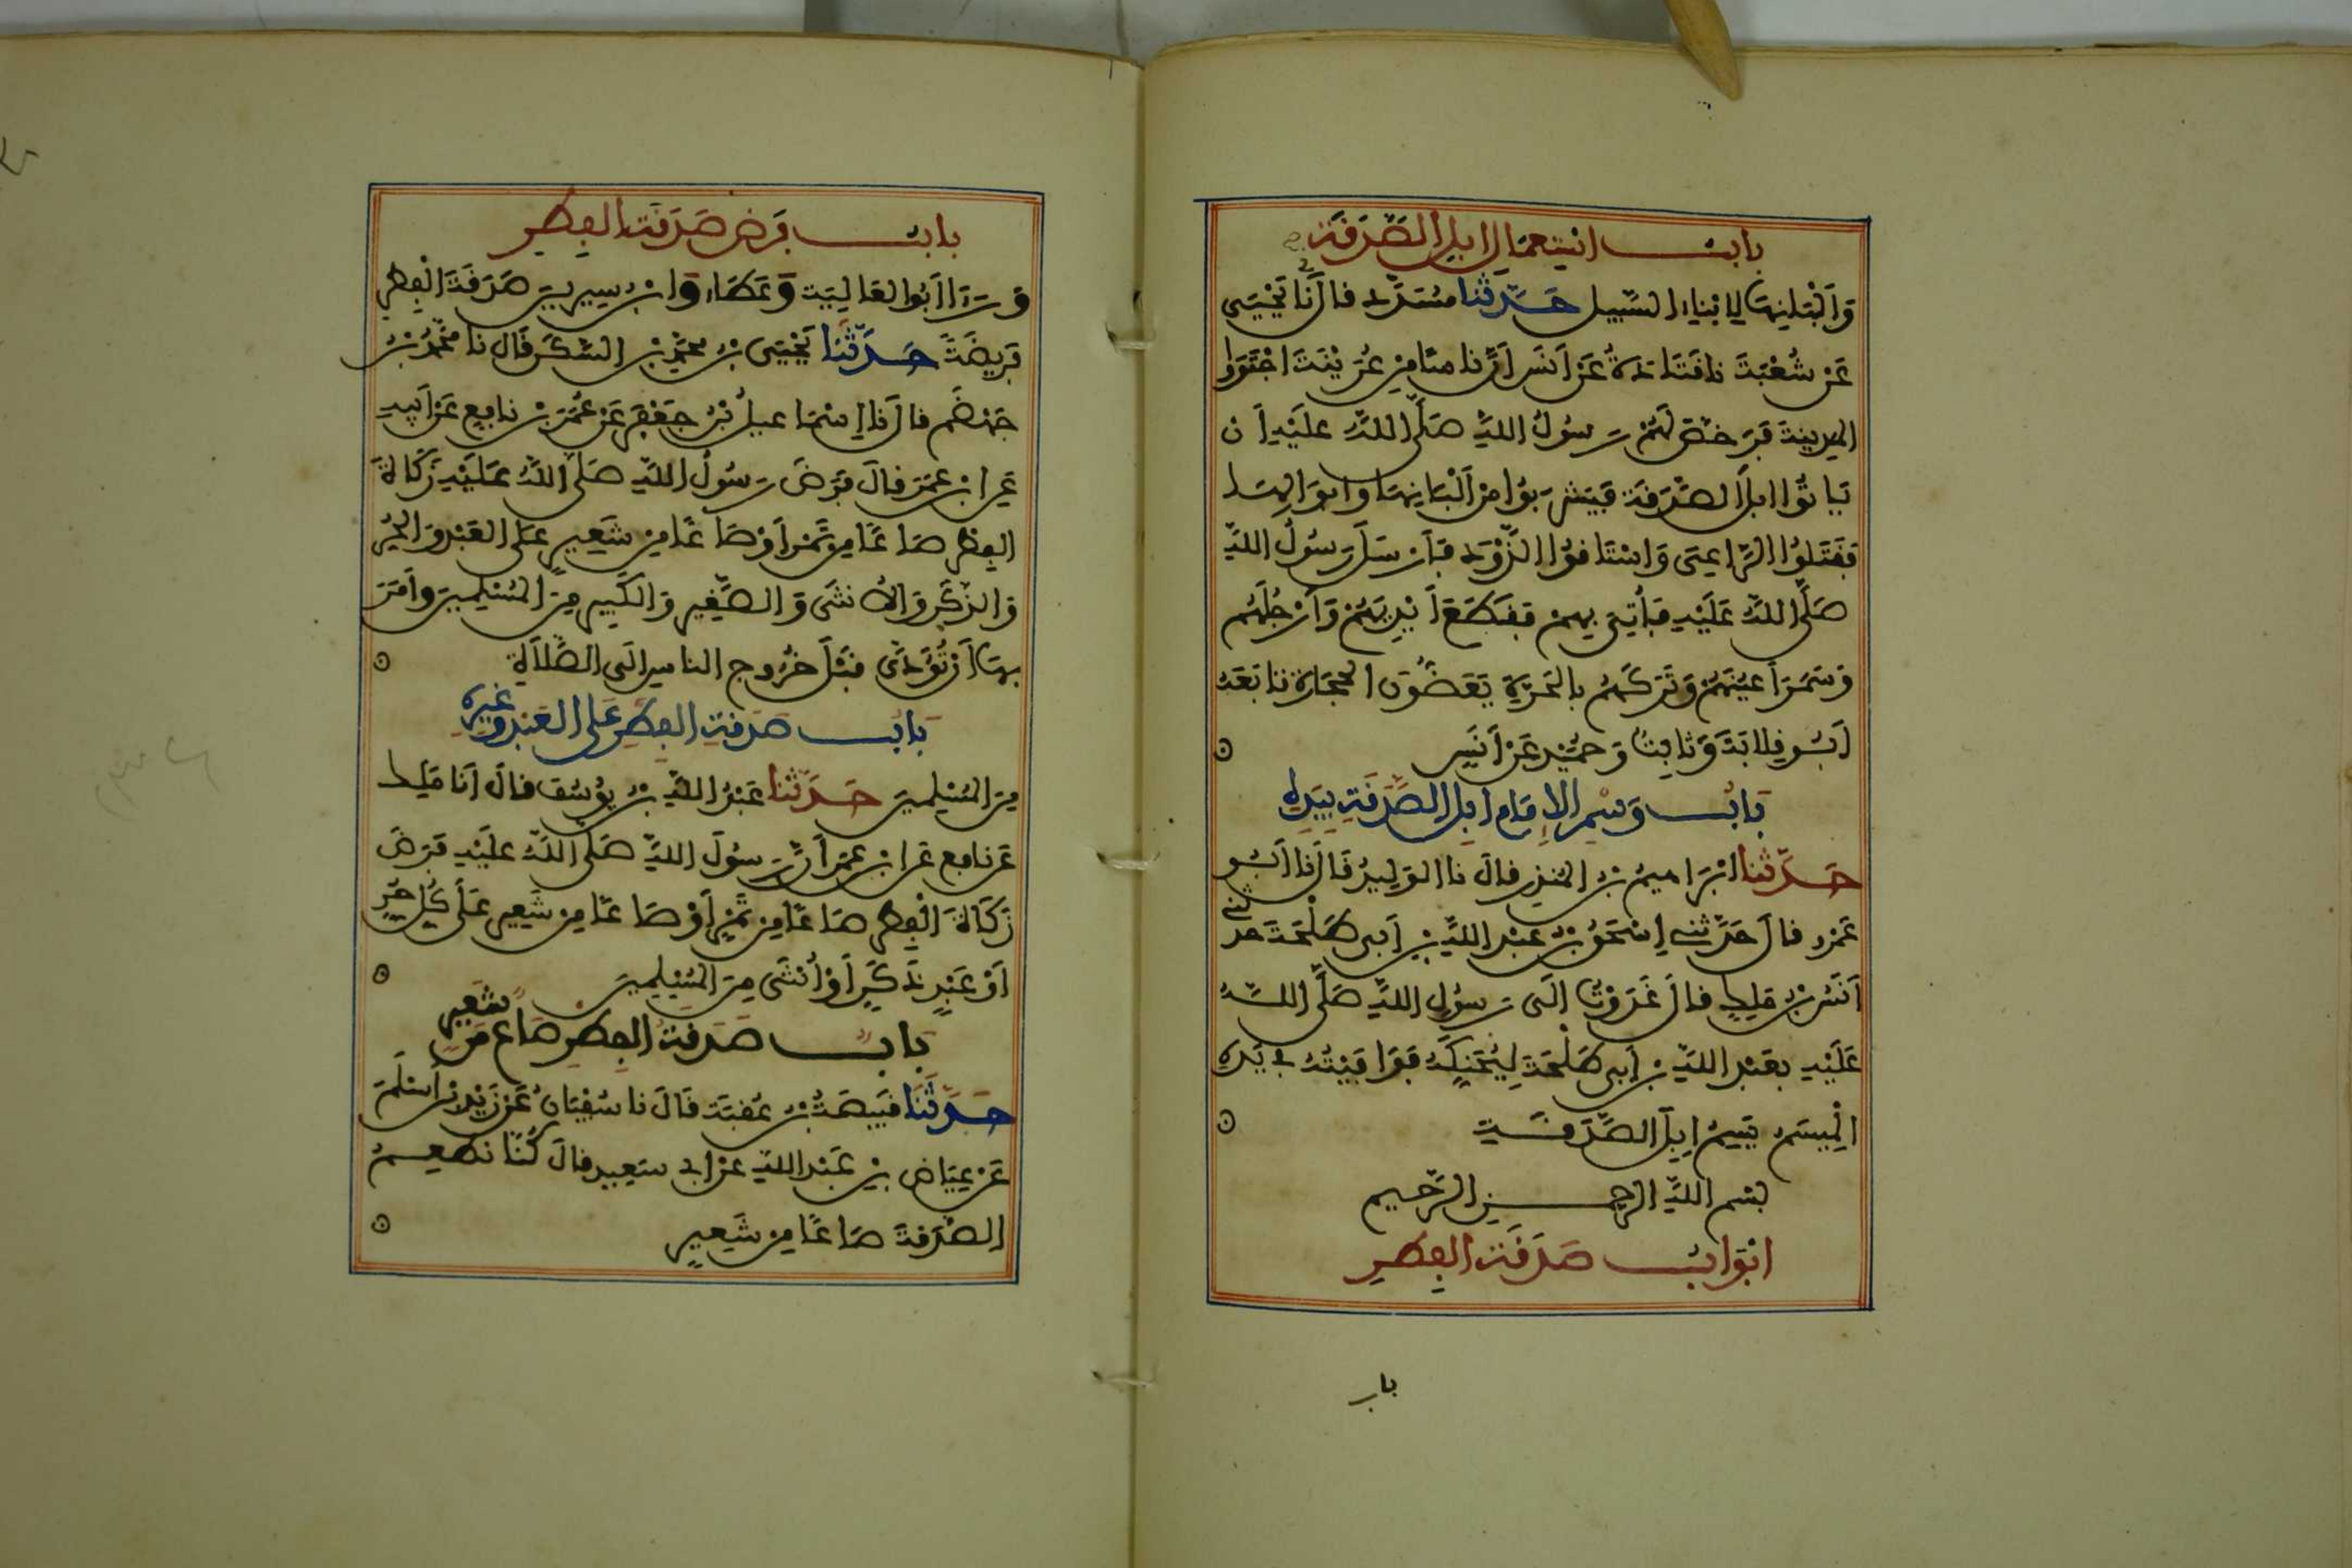 باب استعمال إبل الصدقة
وَألبانها لابناء السبيل حدثنا مسدد قال نا يحيى
عن شعبة نا قتادة عن أنس أن ناسا من عرينة اجتووا
المدينة فرخص لهم رسول الله صلى الله عليه أن
ياتوا ابل الصدقة فيشربوا من ألبانها وأبوالها
فقتلوا الراعى واستاقوا الذود فأرسل رسول الله
صلى الله عليه فأتي بهم فقطع أيديهم وأرجلهم
وسمر أعينهم وتركهم بالحرة يعضون الحجارة تابعه
أبو قلابة وثابت وحميد عن أنس
باب وسم الإمام ابل الصدقة بيده
حدثنا ابراهيم بن المنذر قال نا الوليد قال نا أبو
عمرو قال حدثني إسحق بن عبد الله بن أبى طلحة حدثني
أنس بن ملك قال غدوت الى رسول الله صلى الله
عليه بعبد الله بن أبى طلحة ليحنكه فوافيته في يده
الميسم يسم إبل الصدقة
بسم الله الرحمن الرحيم
ابواب صدقة الفطر
باب
باب فرض صدقة الفطر
ورءا أبو العالية وعطاء وابن سيرين صدقة الفطر
فريضة حدثنا يحيى بن محمد بن السكن قال نا محمد بن
جهضم قال نا إسماعيل بن جعفر عن عمر بن نافع عن أبيه
عن ابن عمر قال فرض رسول الله صلى الله عليه زكاة
الفطر صاعا من تمر أو صاعا من شعير على العبد والحر
والذكر والأنثى والصغير والكبير من المسلمين وأمر
بها أن تؤدى قبل خروج الناس الى الصلاة
باب صدقة الفطر على العبد وغيره
من المسلمين حدثنا عبد الله بن يوسف قال أنا ملك
عن نافع عن ابن عمر أن رسول الله صلى الله عليه فرض
زكاة الفطر صاعا من تمر أو صاعا من شعير على كل حر
أو عبد ذكر أو أنثى من المسلمين
باب صدقة الفطر صاع من شعير
حدثنا قبيصة بن عقبة قال نا سفيان عن زيد بن أسلم
عن عياض بن عبد الله عن ابي سعيد قال كنا نطعم
الصدقة صاعا من شعير